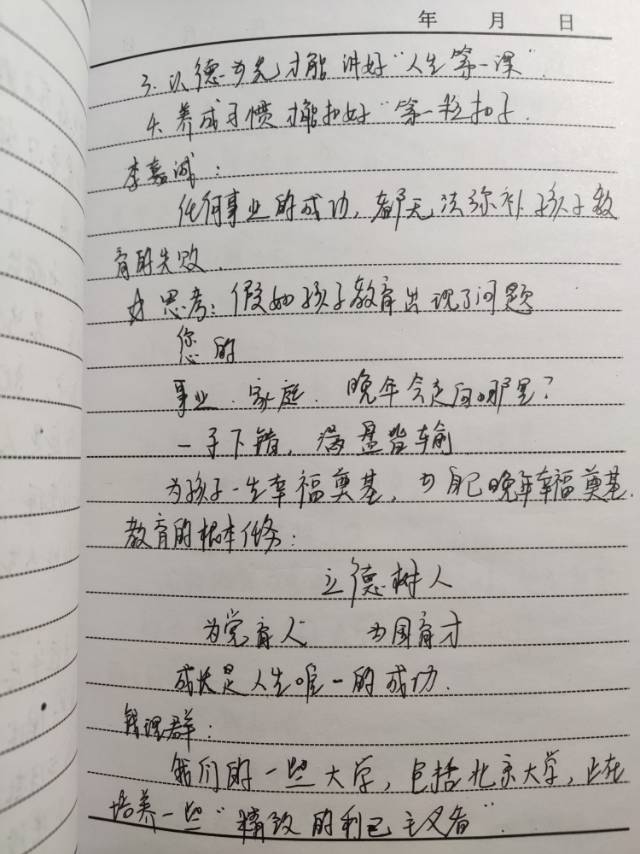 年 月 日
3. 以德为先才能讲好"人生第一课".
4. 养成习惯才能扣好"第一粒扣子.
李嘉诚:
任何事业的成功,都无法弥补孩子教
育的失败.
思考:假如孩子教育出现了问题
您的
事业.家庭.晚年会走向哪里?
一子下错,满盘皆输
为孩子一生幸福奠基,为自己晚年幸福奠基.
教育的根本任务:
立德树人
为党育人 为国育才
成长是人生唯一的成功.
钱理群:
我们的一些大学,包括北京大学,正在
培养一些"精致的利己主义者".